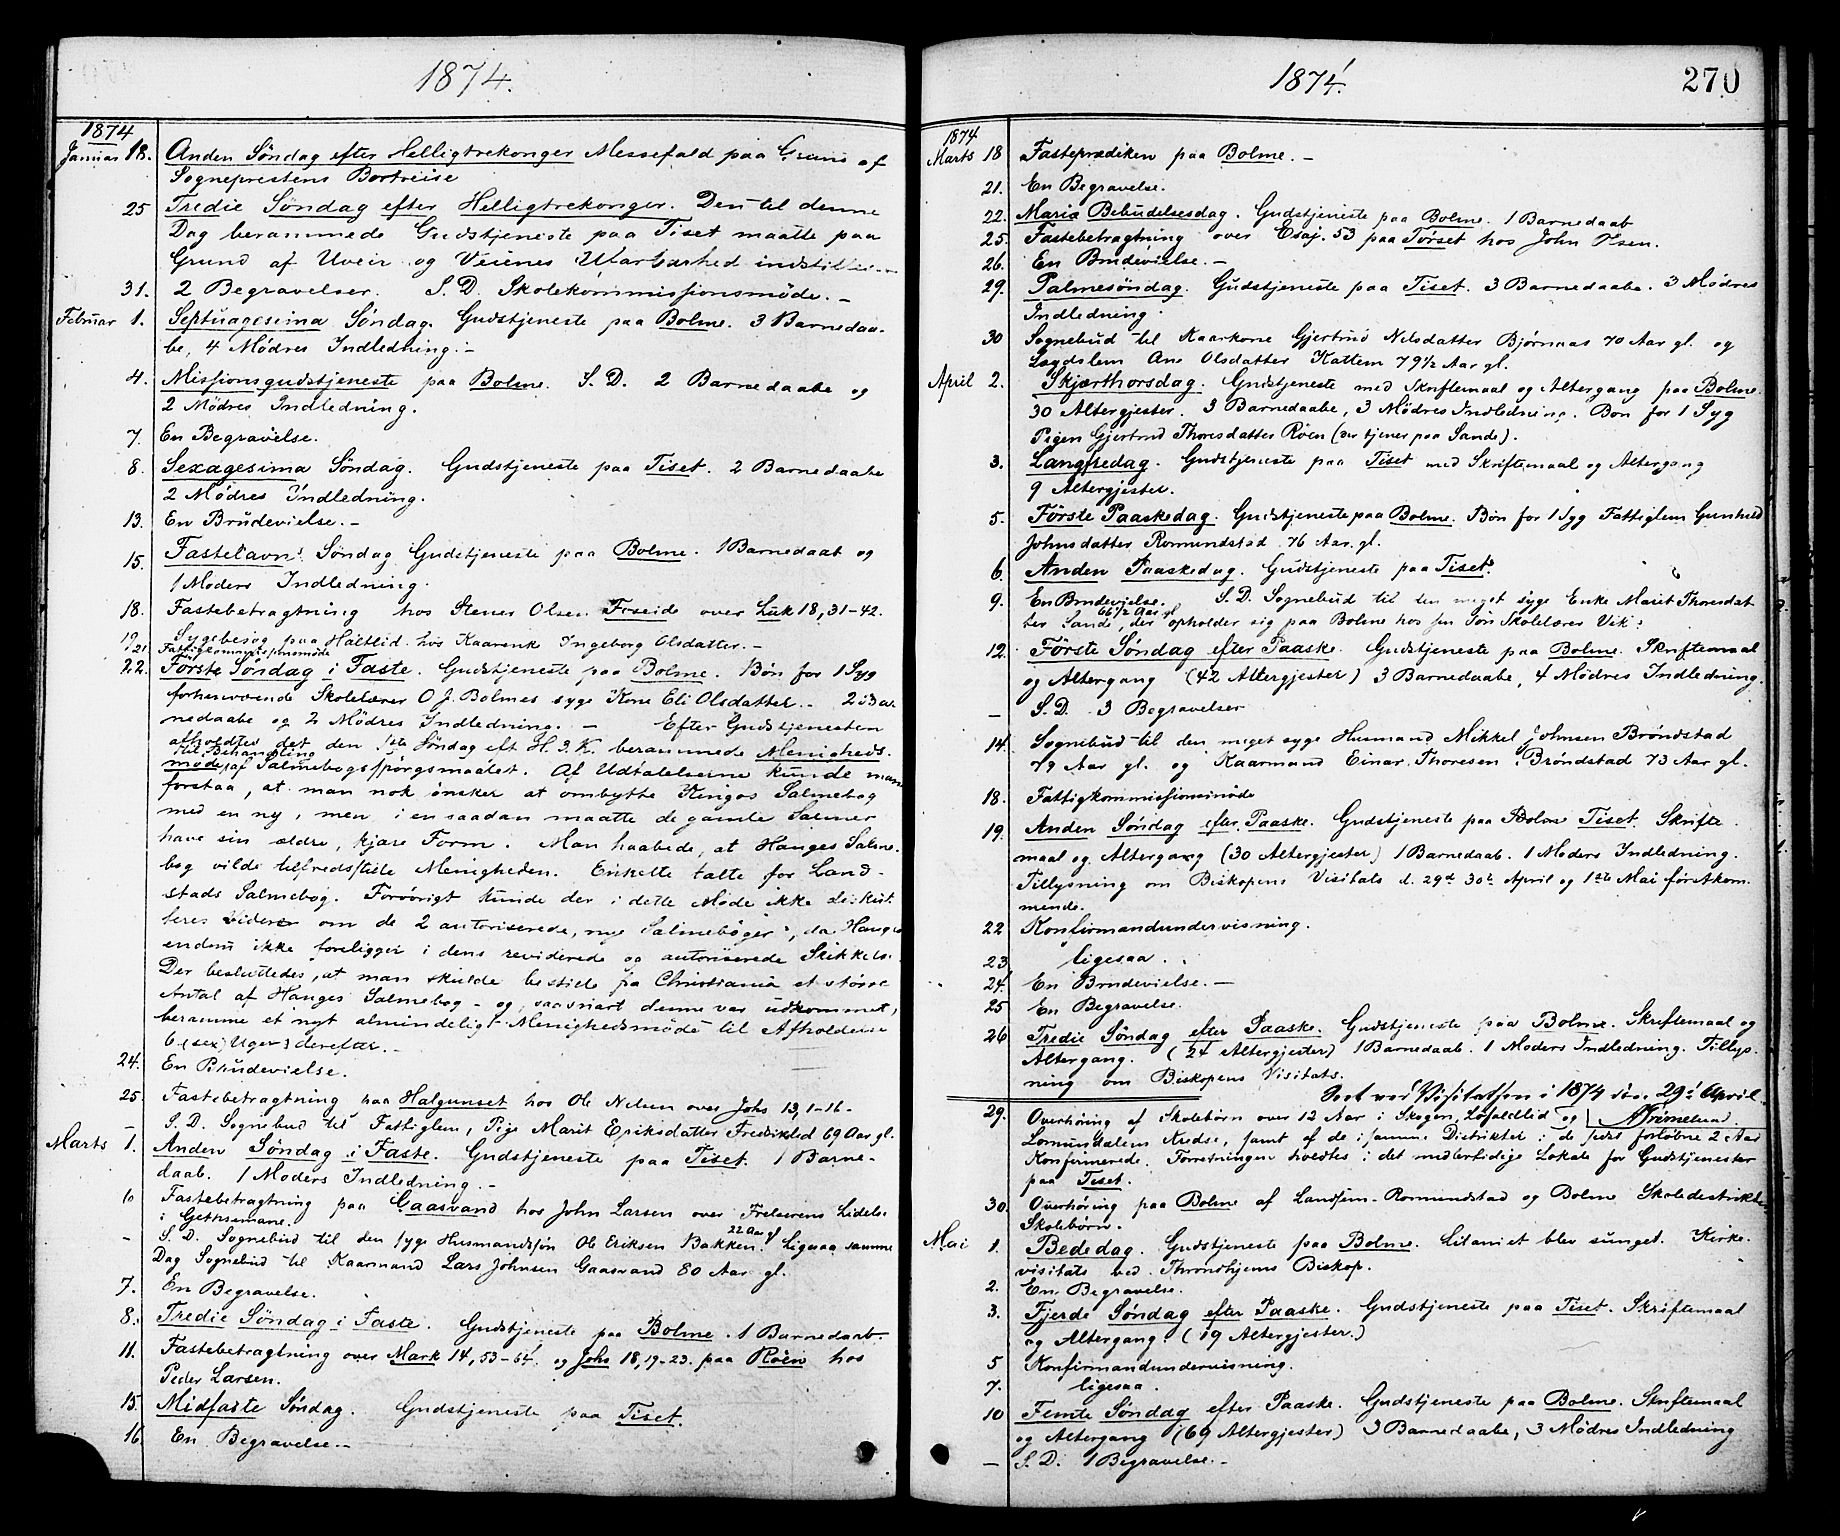 1874.
1874
Januar 18. Anden Söndag efter Helligtrekonger Messefald paa Grund af
Sogneprestens Bortreise
25 Tredie Söndag efter Helligtrekonger. Den til denne
Dag berammede Gudstjeneste paa Tiset maatte paa
Grund af Uveir og Veienes Ufarbarhed indstilles.
31. 2 Begravelser. S. D. Skolekommissionsmöde. –
Februar 1. Septuagesima Söndag. Gudstjeneste paa Bolme. 3 Barnedaa-
be, 4 Mödres Indledning. –
4. Missionsgudstjeneste paa Bolme. S. D. 2 Barnedaabe og
2 Mödres Indledning.
7. En Begravelse.
8. Sexagesima Söndag. Gudstjeneste paa Tiset. 2 Barnedaabe
2 Mödres Indledning.
13. En Brudevielse. –
15. Fastelavns Söndag Gudstjeneste paa Bolme. 1 Barnedaab og
1 Moders Indledning.
18. Fastebetragtning hos Stener Olsen Foseide over Luk 18, 31-42.
19. Sygebesøg paa Haltlid hos Kaarenk Ingeborg Olsdatter. –
21 Fattigkommissionsmöde
22. Förste Söndag i Faste. Gudstjeneste paa Bolme. Bön for 1 Syg
forhenværende Skolelærer O J. Bolmes syge Kone Eli Olsdatter. – 2 Bar
nedaabe og 2 Mödres Indledning. – Efter Gudstjenesten
afholdtes det den 1ste Söndag eft H. 3. K. berammede Menigheds-
möde til Behandling af Salmebogsspörgsmaalet. Af Udtalelserne kunde man
forstaa, at man nok önsker at ombytte Kingos Salmebog
med en ny, men i en saadan maatte de gamle Salmer
have sin ældre, kjære Form. Man haabede, at Hauges Salme-
bog vilde tilfredsstille Menigheden. Enkelte talte for Land-
stads Salmebog. Forövrigt kunde der i dette Möde ikke diskut
teres videre om de 2 autoriserede, nye Salmebøger, da Hauges
endnu ikke foreligger i dens reviderede og autoriserede Skikkelse.
Der besluttedes, at man skulde bestille fra Christiania et större
Antal af Hauges Salmebog – og, saasnart denne var udkommet,
beramme et nyt almindeligt Menighedsmöde til Afholdelse
6 (sex) Uger derefter. –
24. En Brudevielse.
25. Fastebetragtning paa Halgunset hos Ole Nilsen over Johs 13, 1-16 –
– S. D. Sognebud til Fattiglem, Pige Marit Eriksdatter Fredriklid 69 Aar gl.
Marts 1. Anden Söndag i Faste. Gudstjeneste paa Tiset. 1 Barne-
daab. 1 Moders Indledning. –
Fastebetragtning paa Gaasvand hos John Larsen over Frelserens Lidelse
i Gethsemane.
– S. D. Sognebud til den syge Husmandssön Ole Eriksen Bakken. 22 Aar gl Ligesaa samme
Dag Sognebud til Kaarmand Lars Johnsen Gaasvand 80 Aar gl.
7. En Begravelse.
8. Tredie Söndag i Faste. Gudstjeneste paa Bolme. 1 Barnedaab.
11. Fastebetragtning over Mark 14, 53-64. og Johs 18, 19-23. paa Röen hos
Peder Larsen.
15. Midfaste Söndag. Gudstjeneste paa Tiset.
16 En Begravelse. –
1874.
270
1874
Marts 18 Fasteprædiken paa Bolme. –
21. En Begravelse.
22. Mariæ Bebudelsesdag. Gudstjeneste paa Bolme. 1 Barnedaab
25. Fastebetragtning over Esaj. 53 paa Törset hos John Olsen.
26. En Brudevielse. –
29. Palmesöndag. Gudstjeneste paa Tiset. 3 Barnedaabe. 3 Mödres
Indledning.
30 Sognebud til Kaarkone Gjertrud Nilsdatter Bjørnaas 70 Aar gl. og
Lægdslem Ane Olsdatter Kattem 79½ Aar gl.
April 2. Skjærthorsdag. Gudstjeneste med Skriftemaal og Altergang paa Bolme.
30 Altergjester. 3 Barnedaabe, 3 Mödres Indledning. Bøn for 1 Syg
Pigen Gjertrud Thoresdatter Röen (der tjener paa Sande).
3. Langfredag. Gudstjeneste paa Tiset med Skriftemaal og Altergang
9 Altergjester.
5. Förste Paaskedag. Gudstjeneste paa Bolme. Bön for 1 Syg Fattiglem Gunhild
Johnsdatter Romundstad 76 Aar gl.
6. Anden Paaskedag. Gudstjeneste paa Tiset.
9. En Brudevielse. S. D. Sognebud til den meget syge Enke Marit Thorsdat
ter Sande, 66½ Aar gl der opholder sig paa Bolme hos sin Sön Skolelærer Vik.
12. Förste Söndag efter Paaske. Gudstjeneste paa Bolme. Skriftemaal
og Altergang (42 Altergjester) 3 Barnedaabe, 4 Mödres Indledning.
– S. D. 3 Begravelser
14. Sognebud til den meget syge Husmand Mikkel Johnsen Bröndstad
79 Aar gl. og Kaarmand Einar Thoresen Bröndstad 73 Aar gl.
18. Fattigkommissionsmöde
19. Anden Söndag efter Paaske. Gudstjeneste paa Bolme Tiset. Skrifte-
maal og Altergang (30 Altergjester) 1 Barnedaab. 1 Moders Indledning.
Tillysning om Biskopens Visitats d. 29de 30te April og 1ste Mai førstkom-
mende.
22 Konfirmandundervisning.
23 ligesaa.
24. En Brudevielse. –
25 En Begravelse.
26 Tredie Söndag efter Paaske. Gudstjeneste paa Bolme. Skriftemaal og
Altergang. (24 Altergjester) 1 Barnedaab. 1 Moders Indledning. Tillys-
ning om Biskopens Visitats.
Seet ved Visitatsen i 1874 den 29de April.
29. Overhöring af Skolebörn over 12 Aar i Skogen, Lofaldlid og
Lomundalens Kredse, samt af de i samme Distrikter i de sidst forløbne 2 Aar
Konfirmerede. Forretningen holdtes i det midlertidige Lokale for Gudstjenester
paa Tiset.
30. Overhöring paa Bolme af Landsem-Romundstad og Bolme Skoledistrikters
Skolebörn.
Mai 1. Bededag. Gudstjeneste paa Bolme. Litaniet blev sunget. Kirke-
visitats ved Throndhjems Biskop.
2. En Begravelse.
3. Fjerde Söndag efter Paaske. Gudstjeneste paa Tiset. Skriftemaal
og Altergang. (19 Altergjester.)
5 Konfirmandundervisning.
7. ligesaa.
10 Femte Söndag efter Paaske. Gudstjeneste paa Bolme. Skriftemaal
og Altergang (69 Altergjester) 3 Barnedaabe, 3 Mödres Indledning
– S. D. 1 Begravelse. –